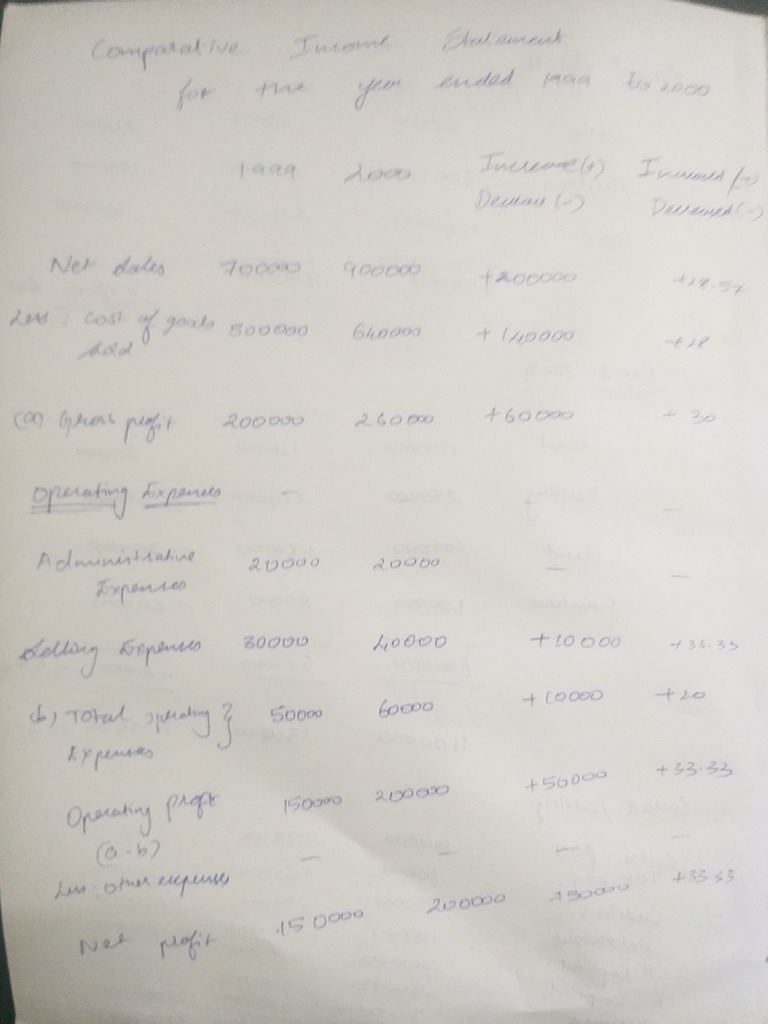 Comparative Income Statement
for the year ended 1999 to 2000
1999 2000 Increase (+) Increased (+)
Decrease (-) Decreased (-)
Net Sales 700000 900000 +200000 +28.57
Less: Cost of goods 500000 640000 +140000 +28
Sold
(a) Gross profit 200000 260000 +60000 + 30
Operating Expenses —
Administrative 20000 20000 — —
Expenses
Selling Expenses 30000 40000 +10000 +33.33
(b) Total operating } 50000 60000 +10000 +20
Expenses
Operating profit 150000 200000 +50000 +33.33
(a-b) — — — —
Less: Other expenses
Net profit 150000 200000 +50000 +33.33